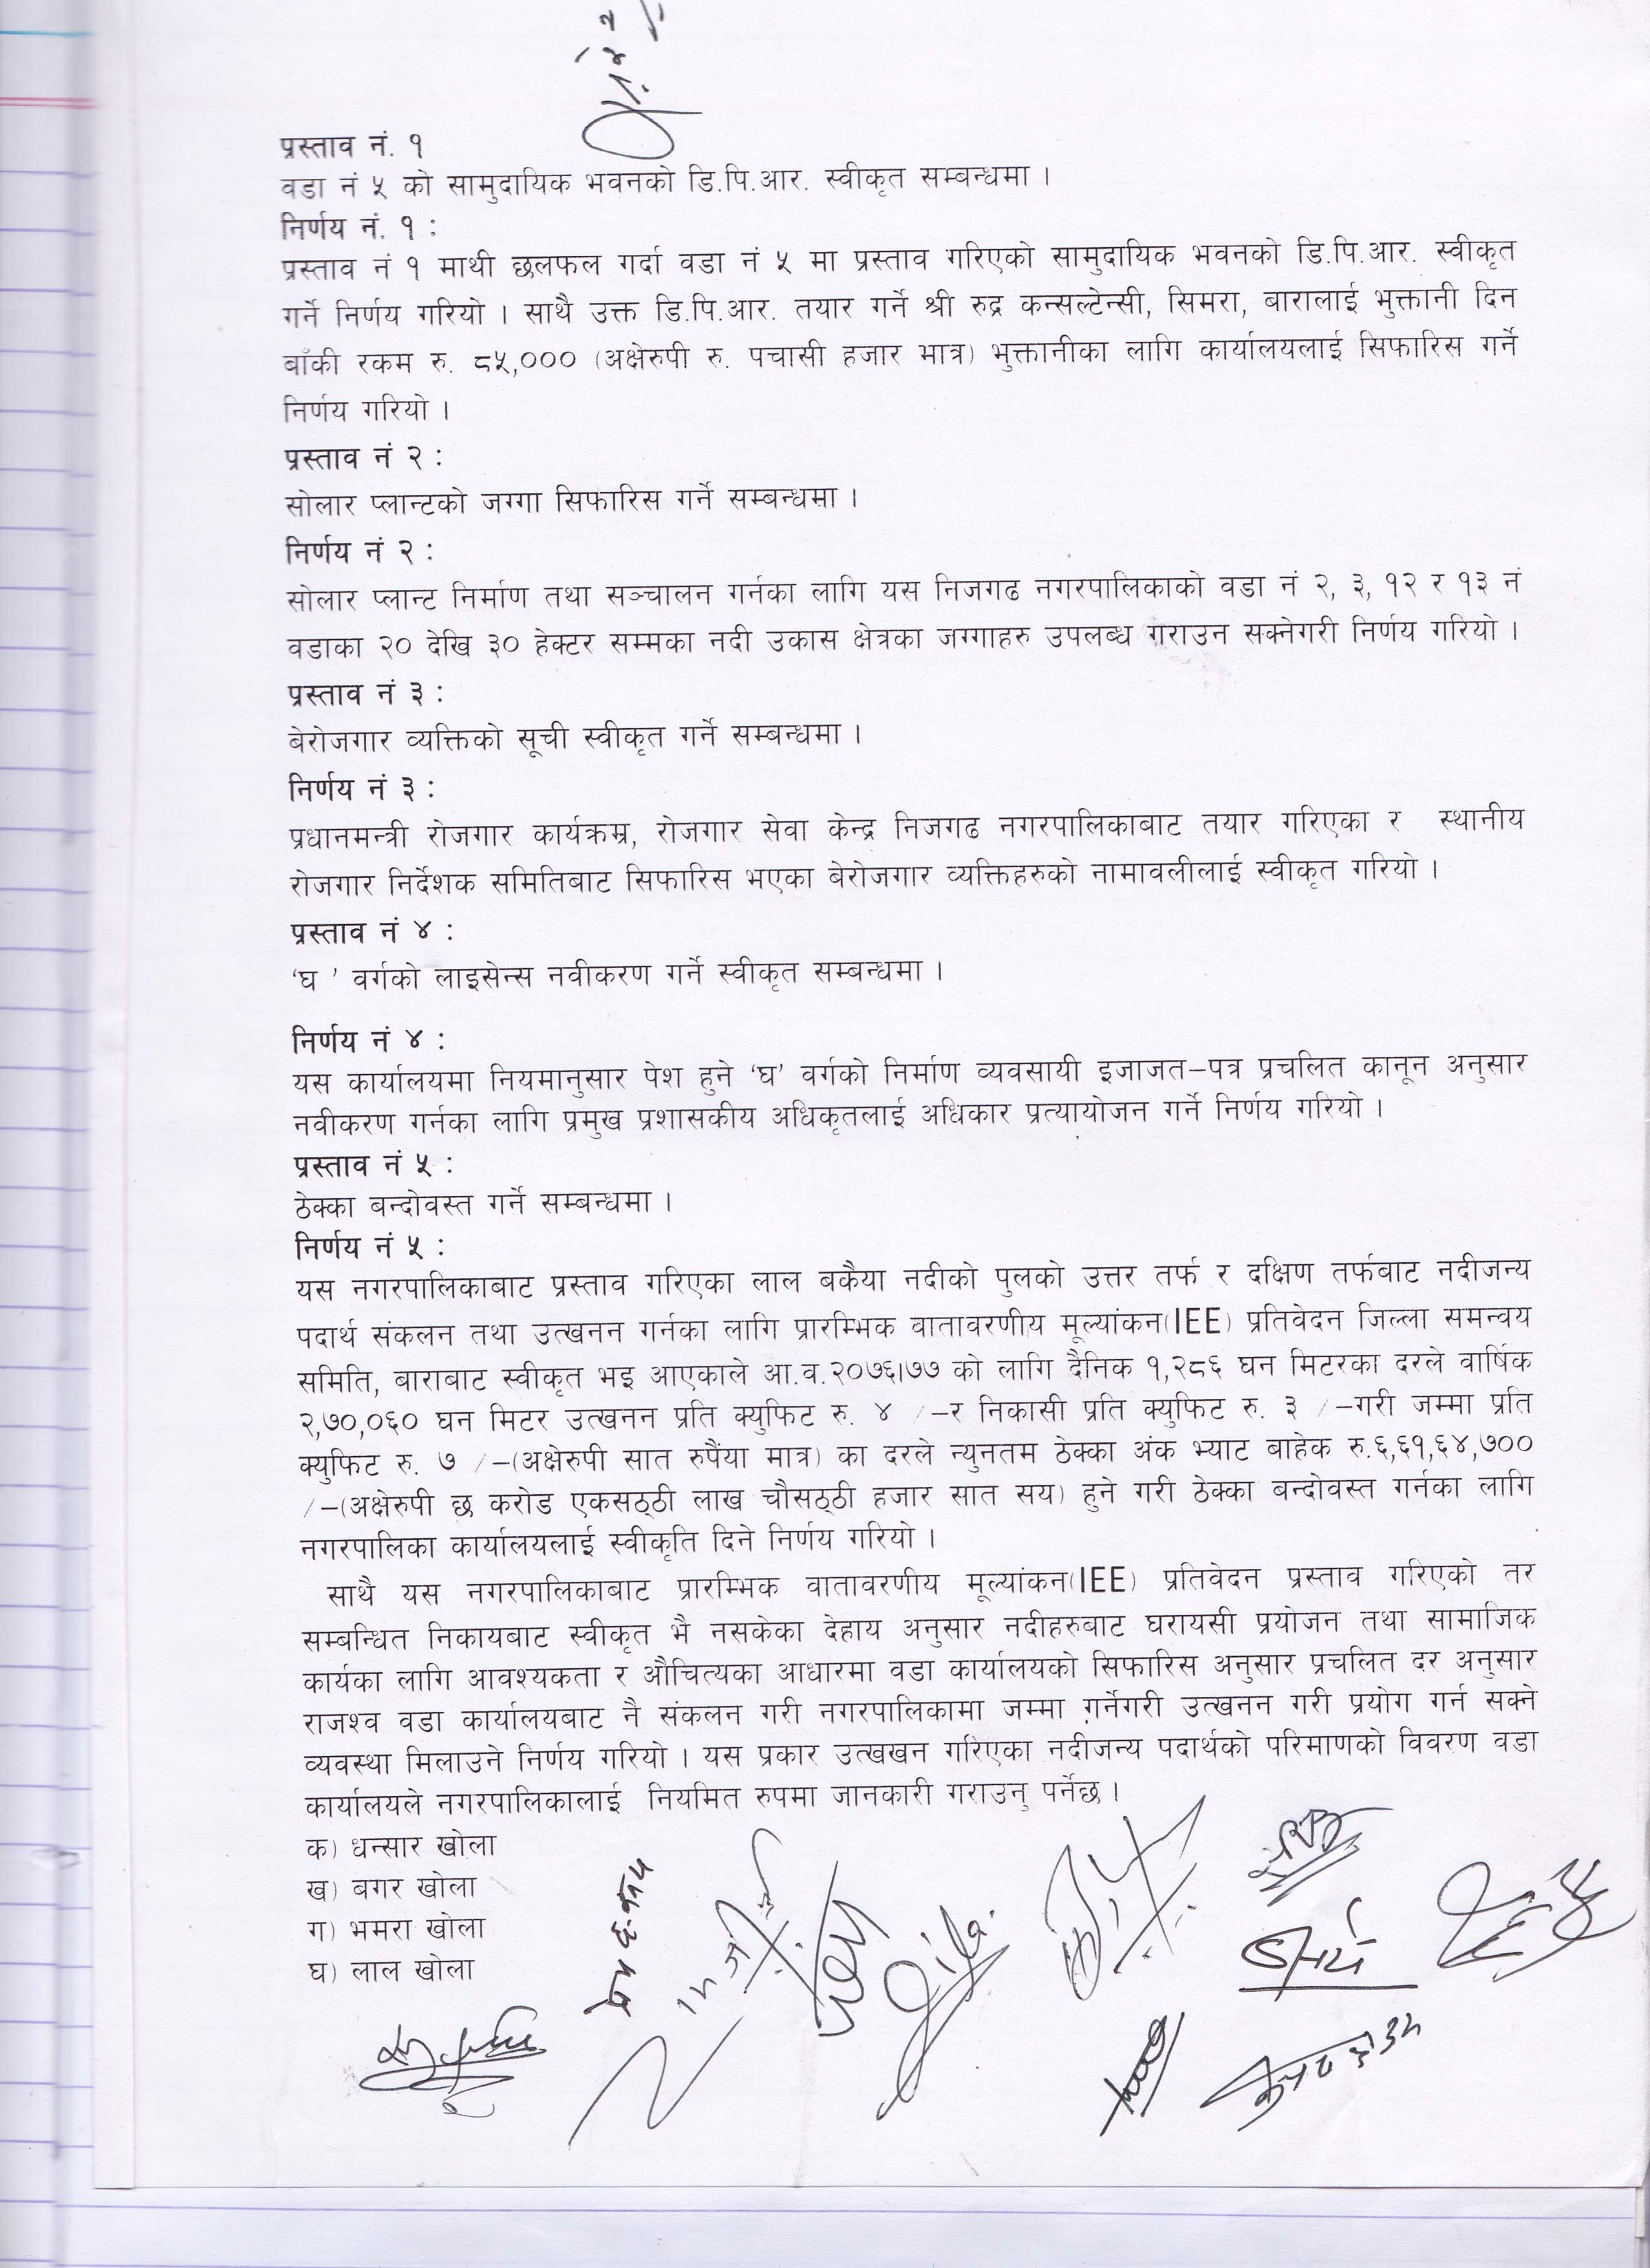 प्रस्ताव नं. १
वडा नं ५ को सामुदायिक भवनको डि.पि.आर. स्वीकृत सम्बन्धमा ।
निर्णय नं. १ :
प्रस्ताव नं १ माथी छलफल गर्दा वडा नं ५ मा प्रस्ताव गरिएको सामुदायिक भवनको डि.पि.आर. स्वीकृत
गर्ने निर्णय गरियो । साथै उक्त डि.पि.आर. तयार गर्ने श्री रुद्र कन्सल्टेन्सी, सिमरा, बारालाई भुक्तानी दिन
बाँकी रकम रु. ८५,००० (अक्षेरुपी रु. पचासी हजार मात्र) भुक्तानीका लागि कार्यालयलाई सिफारिस गर्ने
निर्णय गरियो ।
प्रस्ताव नं २ :
सोलार प्लान्टको जग्गा सिफारिस गर्ने सम्बन्धमा ।
निर्णय नं २ :
सोलार प्लान्ट निर्माण तथा सञ्चालन गर्नका लागि यस निजगढ नगरपालिकाको वडा नं २, ३, १२ र १३ नं
वडाका २० देखि ३० हेक्टर सम्मका नदी उकास क्षेत्रका जग्गाहरु उपलब्ध गराउन सक्नेगरी निर्णय गरियो ।
प्रस्ताव नं ३ :
बेरोजगार व्यक्तिको सूची स्वीकृत गर्ने सम्बन्धमा ।
निर्णय नं ३ :
प्रधानमन्त्री रोजगार कार्यक्रम्र, रोजगार सेवा केन्द्र निजगढ नगरपालिकाबाट तयार गरिएका र स्थानीय
रोजगार निर्देशक समितिबाट सिफारिस भएका बेरोजगार व्यक्तिहरुको नामावलीलाई स्वीकृत गरियो ।
प्रस्ताव नं ४ :
‘घ ’ वर्गको लाइसेन्स नवीकरण गर्ने स्वीकृत सम्बन्धमा ।
निर्णय नं ४ :
यस कार्यालयमा नियमानुसार पेश हुने ‘घ’ वर्गको निर्माण व्यवसायी इजाजत-पत्र प्रचलित कानून अनुसार
नवीकरण गर्नका लागि प्रमुख प्रशासकीय अधिकृतलाई अधिकार प्रत्यायोजन गर्ने निर्णय गरियो ।
प्रस्ताव नं ५ :
ठेक्का बन्दोवस्त गर्ने सम्बन्धमा ।
निर्णय नं ५ :
यस नगरपालिकाबाट प्रस्ताव गरिएका लाल बकैया नदीको पुलको उत्तर तर्फ र दक्षिण तर्फबाट नदीजन्य
पदार्थ संकलन तथा उत्खनन गर्नका लागि प्रारम्भिक वातावरणीय मूल्यांकन(IEE) प्रतिवेदन जिल्ला समन्वय
समिति, बाराबाट स्वीकृत भइ आएकाले आ.व.२०७६।७७ को लागि दैनिक १,२८६ घन मिटरका दरले वार्षिक
२,७०,०६० घन मिटर उत्खनन प्रति क्युफिट रु. ४ /-र निकासी प्रति क्युफिट रु. ३ /-गरी जम्मा प्रति
क्युफिट रु. ७ /-(अक्षेरुपी सात रुपैंया मात्र) का दरले न्युनतम ठेक्का अंक भ्याट बाहेक रु.६,६१,६४,७००
/-(अक्षेरुपी छ करोड एकसठ्ठी लाख चौसठ्ठी हजार सात सय) हुने गरी ठेक्का बन्दोवस्त गर्नका लागि
नगरपालिका कार्यालयलाई स्वीकृति दिने निर्णय गरियो ।
साथै यस नगरपालिकाबाट प्रारम्भिक वातावरणीय मूल्यांकन(IEE) प्रतिवेदन प्रस्ताव गरिएको तर
सम्बन्धित निकायबाट स्वीकृत भै नसकेका देहाय अनुसार नदीहरुबाट घरायसी प्रयोजन तथा सामाजिक
कार्यका लागि आवश्यकता र औचित्यका आधारमा वडा कार्यालयको सिफारिस अनुसार प्रचलित दर अनुसार
राजश्व वडा कार्यालयबाट नै संकलन गरी नगरपालिकामा जम्मा गर्नेगरी उत्खनन गरी प्रयोग गर्न सक्ने
व्यवस्था मिलाउने निर्णय गरियो । यस प्रकार उत्खखन गरिएका नदीजन्य पदार्थको परिमाणको विवरण वडा
कार्यालयले नगरपालिकालाई नियमित रुपमा जानकारी गराउनु पर्नेछ ।
क) धन्सार खोला
ख) बगर खोला
ग) भमरा खोला
घ) लाल खोला